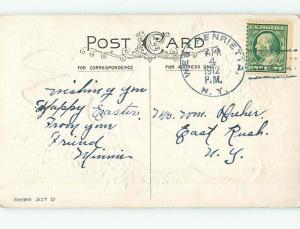 POST CARD
FOR CORRESPONDENCE
FOR ADDRESS ONLY
WEST HENRIETTA
APR
4
1912
P.M.
N.Y.
Wishing you
Happy Easter
From your
Friend
Minnie
Mr. Wm.
East Rush
N.Y.
Series 217 D